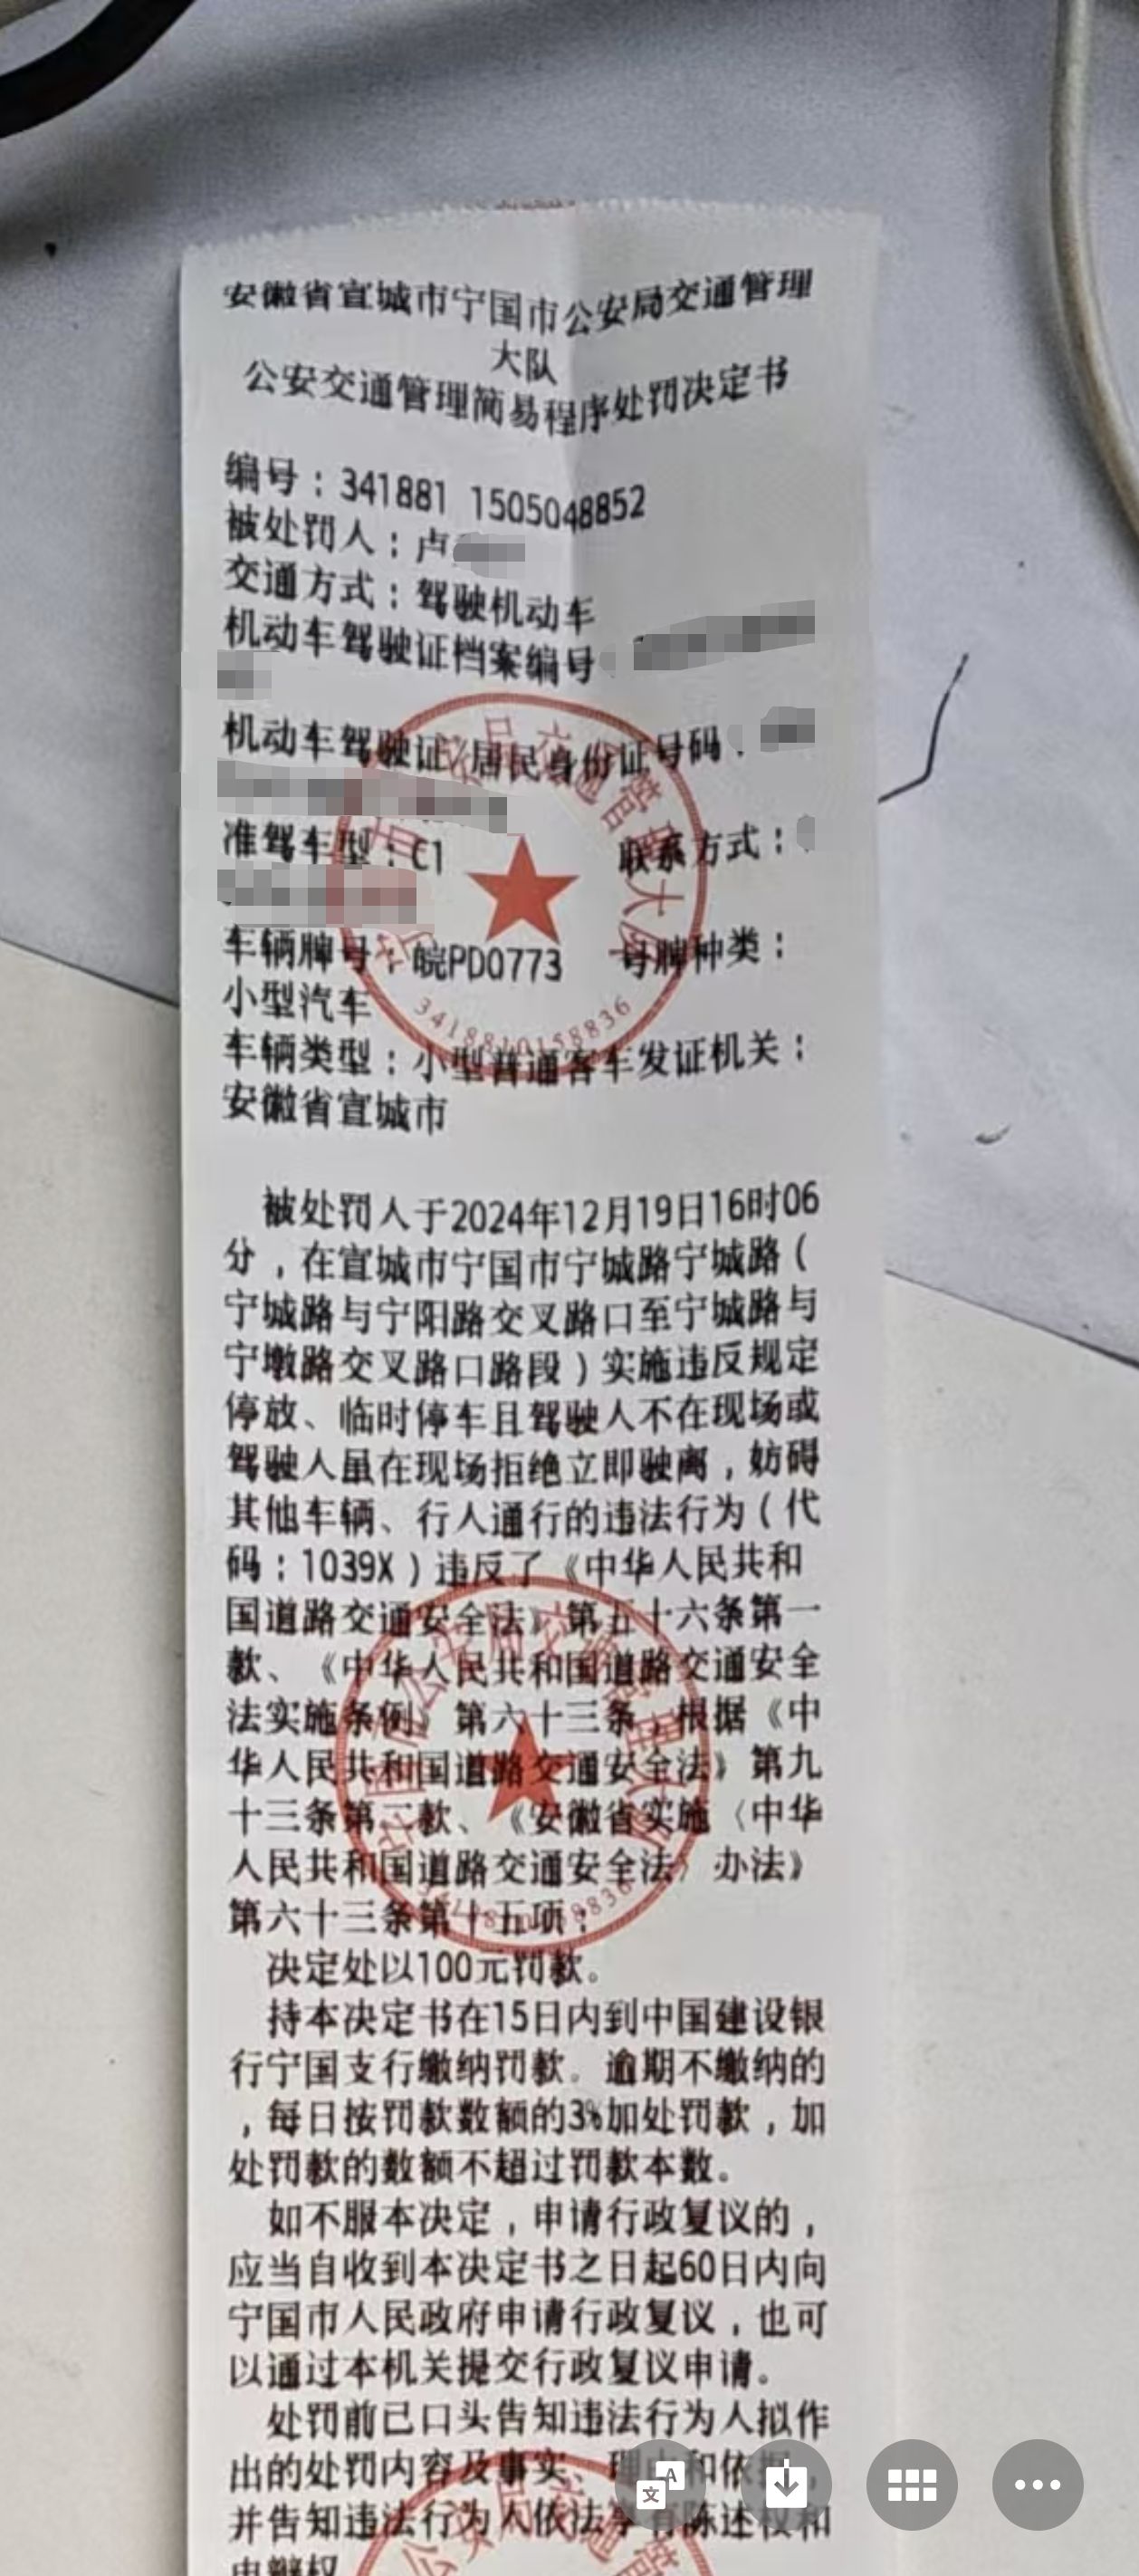 安徽省宣城市宁国市公安局交通管理
大队
公安交通管理简易程序处罚决定书
编号：341881 1505048852
被处罚人：卢
交通方式：驾驶机动车
机动车驾驶证档案编号
机动车驾驶证/居民身份证号码：
准驾车型：C1 联系方式：
车辆牌号：皖PD0773 号牌种类：
小型汽车
车辆类型：小型普通客车发证机关：
安徽省宣城市
3418810158836
被处罚人于2024年12月19日16时06
分，在宣城市宁国市宁城路宁城路（
宁城路与宁阳路交叉路口至宁城路与
宁墩路交叉路口路段）实施违反规定
停放、临时停车且驾驶人不在现场或
驾驶人虽在现场拒绝立即驶离，妨碍
其他车辆、行人通行的违法行为（代
码：1039X）违反了《中华人民共和
国道路交通安全法》第五十六条第一
款、《中华人民共和国道路交通安全
法实施条例》第六十三条，根据《中
华人民共和国道路交通安全法》第九
十三条第二款、《安徽省实施〈中华
人民共和国道路交通安全法〉办法》
第六十三条第十五项；
决定处以100元罚款。
持本决定书在15日内到中国建设银
行宁国支行缴纳罚款。逾期不缴纳的
，每日按罚款数额的3%加处罚款，加
处罚款的数额不超过罚款本数。
如不服本决定，申请行政复议的，
应当自收到本决定书之日起60日内向
宁国市人民政府申请行政复议，也可
以通过本机关提交行政复议申请。
处罚前已口头告知违法行为人拟作
出的处罚内容及事实、理由和依据，
并告知违法行为人依法享有陈述权和
申辩权